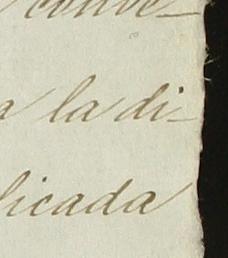 conve-
a la di-
licada